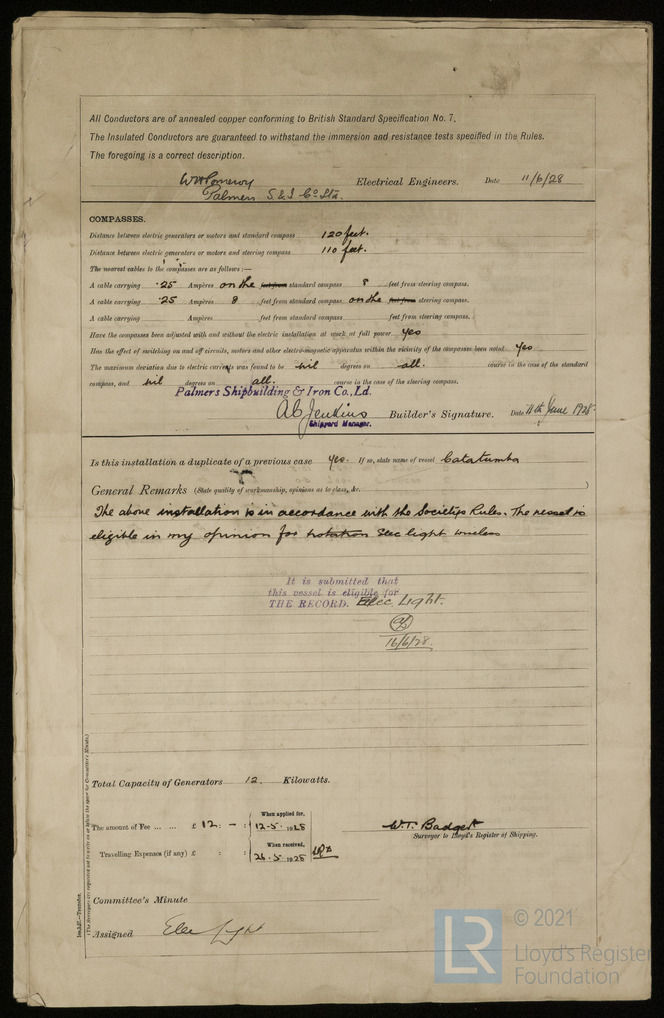 All Conductors are of annealed copper conforming to British Standard Specification No. 7.
The Insulated Conductors are guaranteed to withstand the immersion and resistance tests specified in the Rules.
The foregoing is a correct description.
WHPomeroy Electrical Engineers. Date 11/6/28
Palmers S. & I. Co. Ltd.
COMPASSES.
Distance between electric generators or motors and standard compass 120 feet.
Distance between electric generators or motors and steering compass 110 feet.
The nearest cables to the compasses are as follows:—
A cable carrying .25 Ampères on the feet from standard compass 8 feet from steering compass.
A cable carrying .25 Ampères 8 feet from standard compass on the feet from steering compass.
A cable carrying Ampères feet from standard compass feet from steering compass.
Have the compasses been adjusted with and without the electric installation at work at full power yes
Has the effect of switching on and off circuits, motors and other electro-magnetic apparatus within the vicinity of the compasses been noted yes
The maximum deviation due to electric currents was found to be nil degrees on all. course in the case of the standard
compass, and nil degrees on all. course in the case of the steering compass.
Palmers Shipbuilding & Iron Co., Ld.
A C Jenkins Builder's Signature. Date 11th June 1928.
Shipyard Manager.
Is this installation a duplicate of a previous case yes. If so, state name of vessel Catatumba
General Remarks (State quality of workmanship, opinions as to class, &c.)
The above installation is in accordance with the Societies Rules. The vessel is
eligible in my opinion for notation Elec light wireless
It is submitted that
this vessel is eligible for
THE RECORD. Elec Light.
16/6/28.
Total Capacity of Generators 12. Kilowatts.
The amount of Fee ... ... £ 12 : - : When applied for, 12-5-1928
Travelling Expenses (if any) £ : : When received, 26.5.1928
W.T. Badger
Surveyor to Lloyd's Register of Shipping.
Committee's Minute
Assigned Elec Light
Im.3,27.—Transfer.
(The Surveyors are requested not to write on or below the space for Committee's Minute.)
LR
© 2021
Lloyd's Register
Foundation